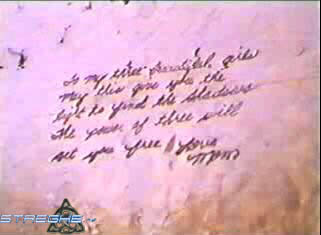 To my three beautiful girls
May this give you the
light to find the shadows
The power of three will
set you free Love
Mom
STREGHE